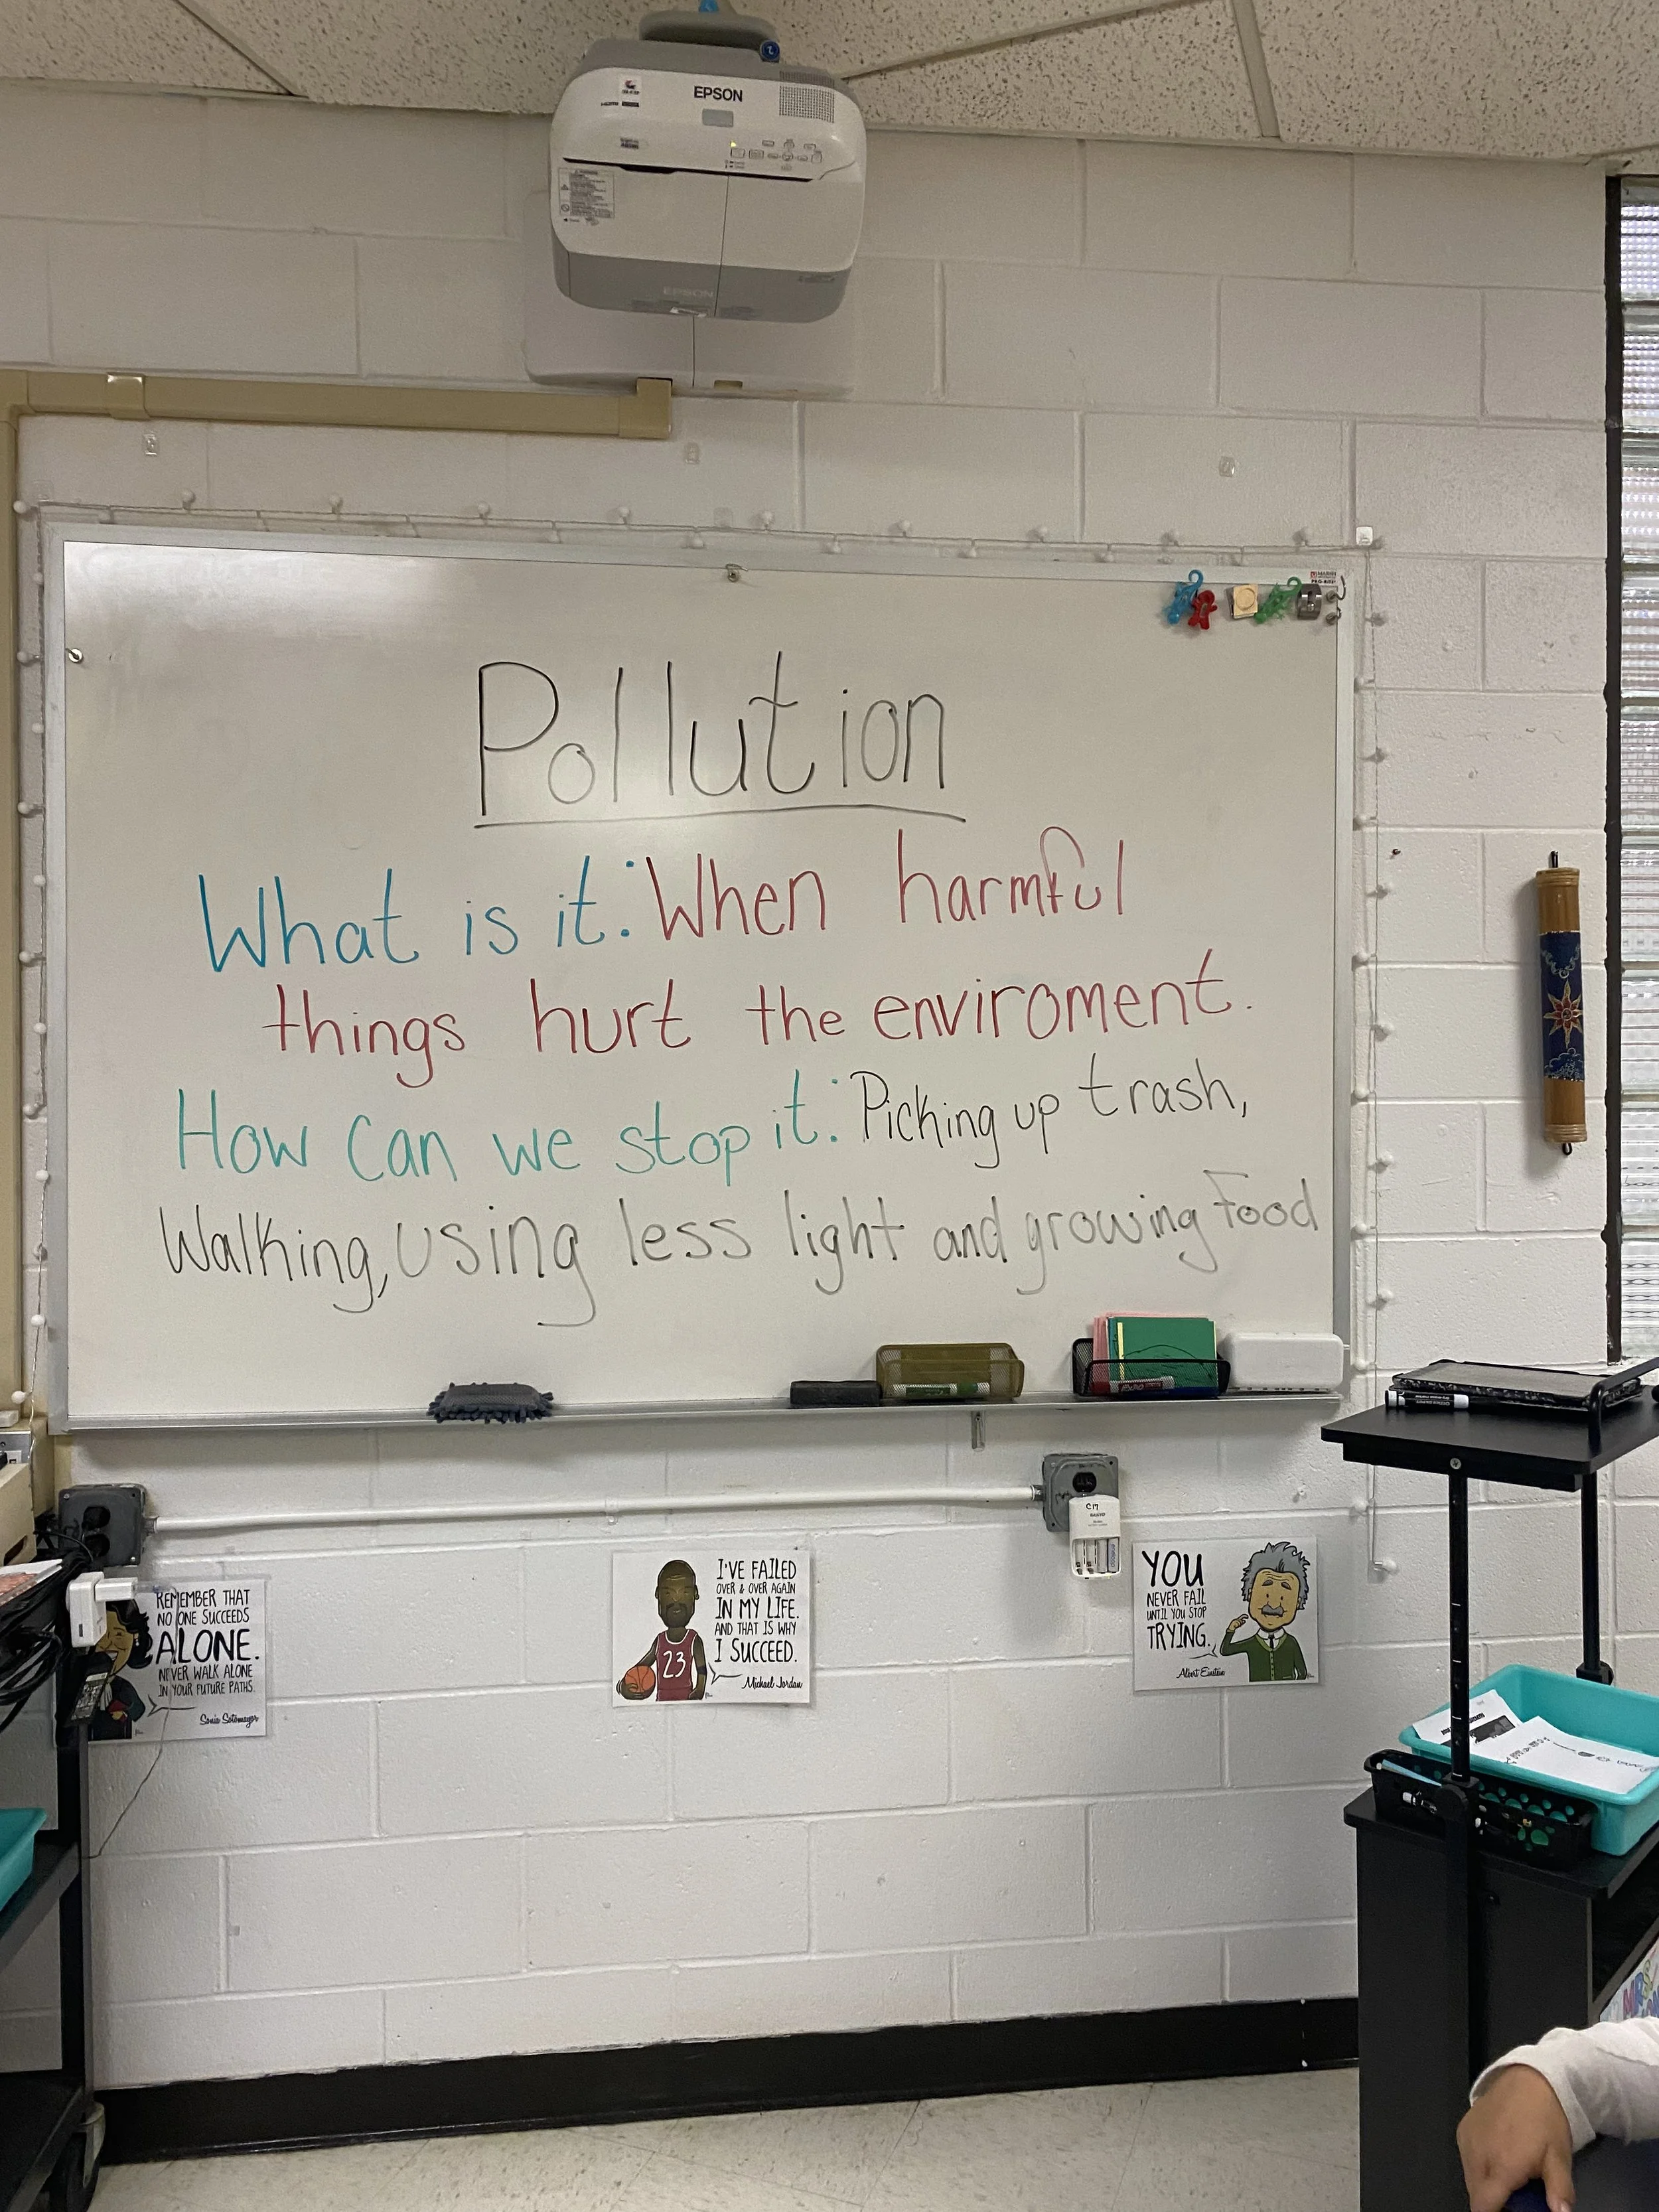 EPSON
EPSON
Pollution
What is it: When harmful
things hurt the enviroment.
How can we stop it: Picking up trash,
Walking, using less light and growing food
C17
REMEMBER THAT
NO ONE SUCCEEDS
ALONE.
NEVER WALK ALONE
IN YOUR FUTURE PATHS.
Sonia Sotomayor
I'VE FAILED
OVER & OVER AGAIN
IN MY LIFE.
AND THAT IS WHY
I SUCCEED.
Michael Jordan
23
YOU
NEVER FAIL
UNTIL YOU STOP
TRYING.
Albert Einstein